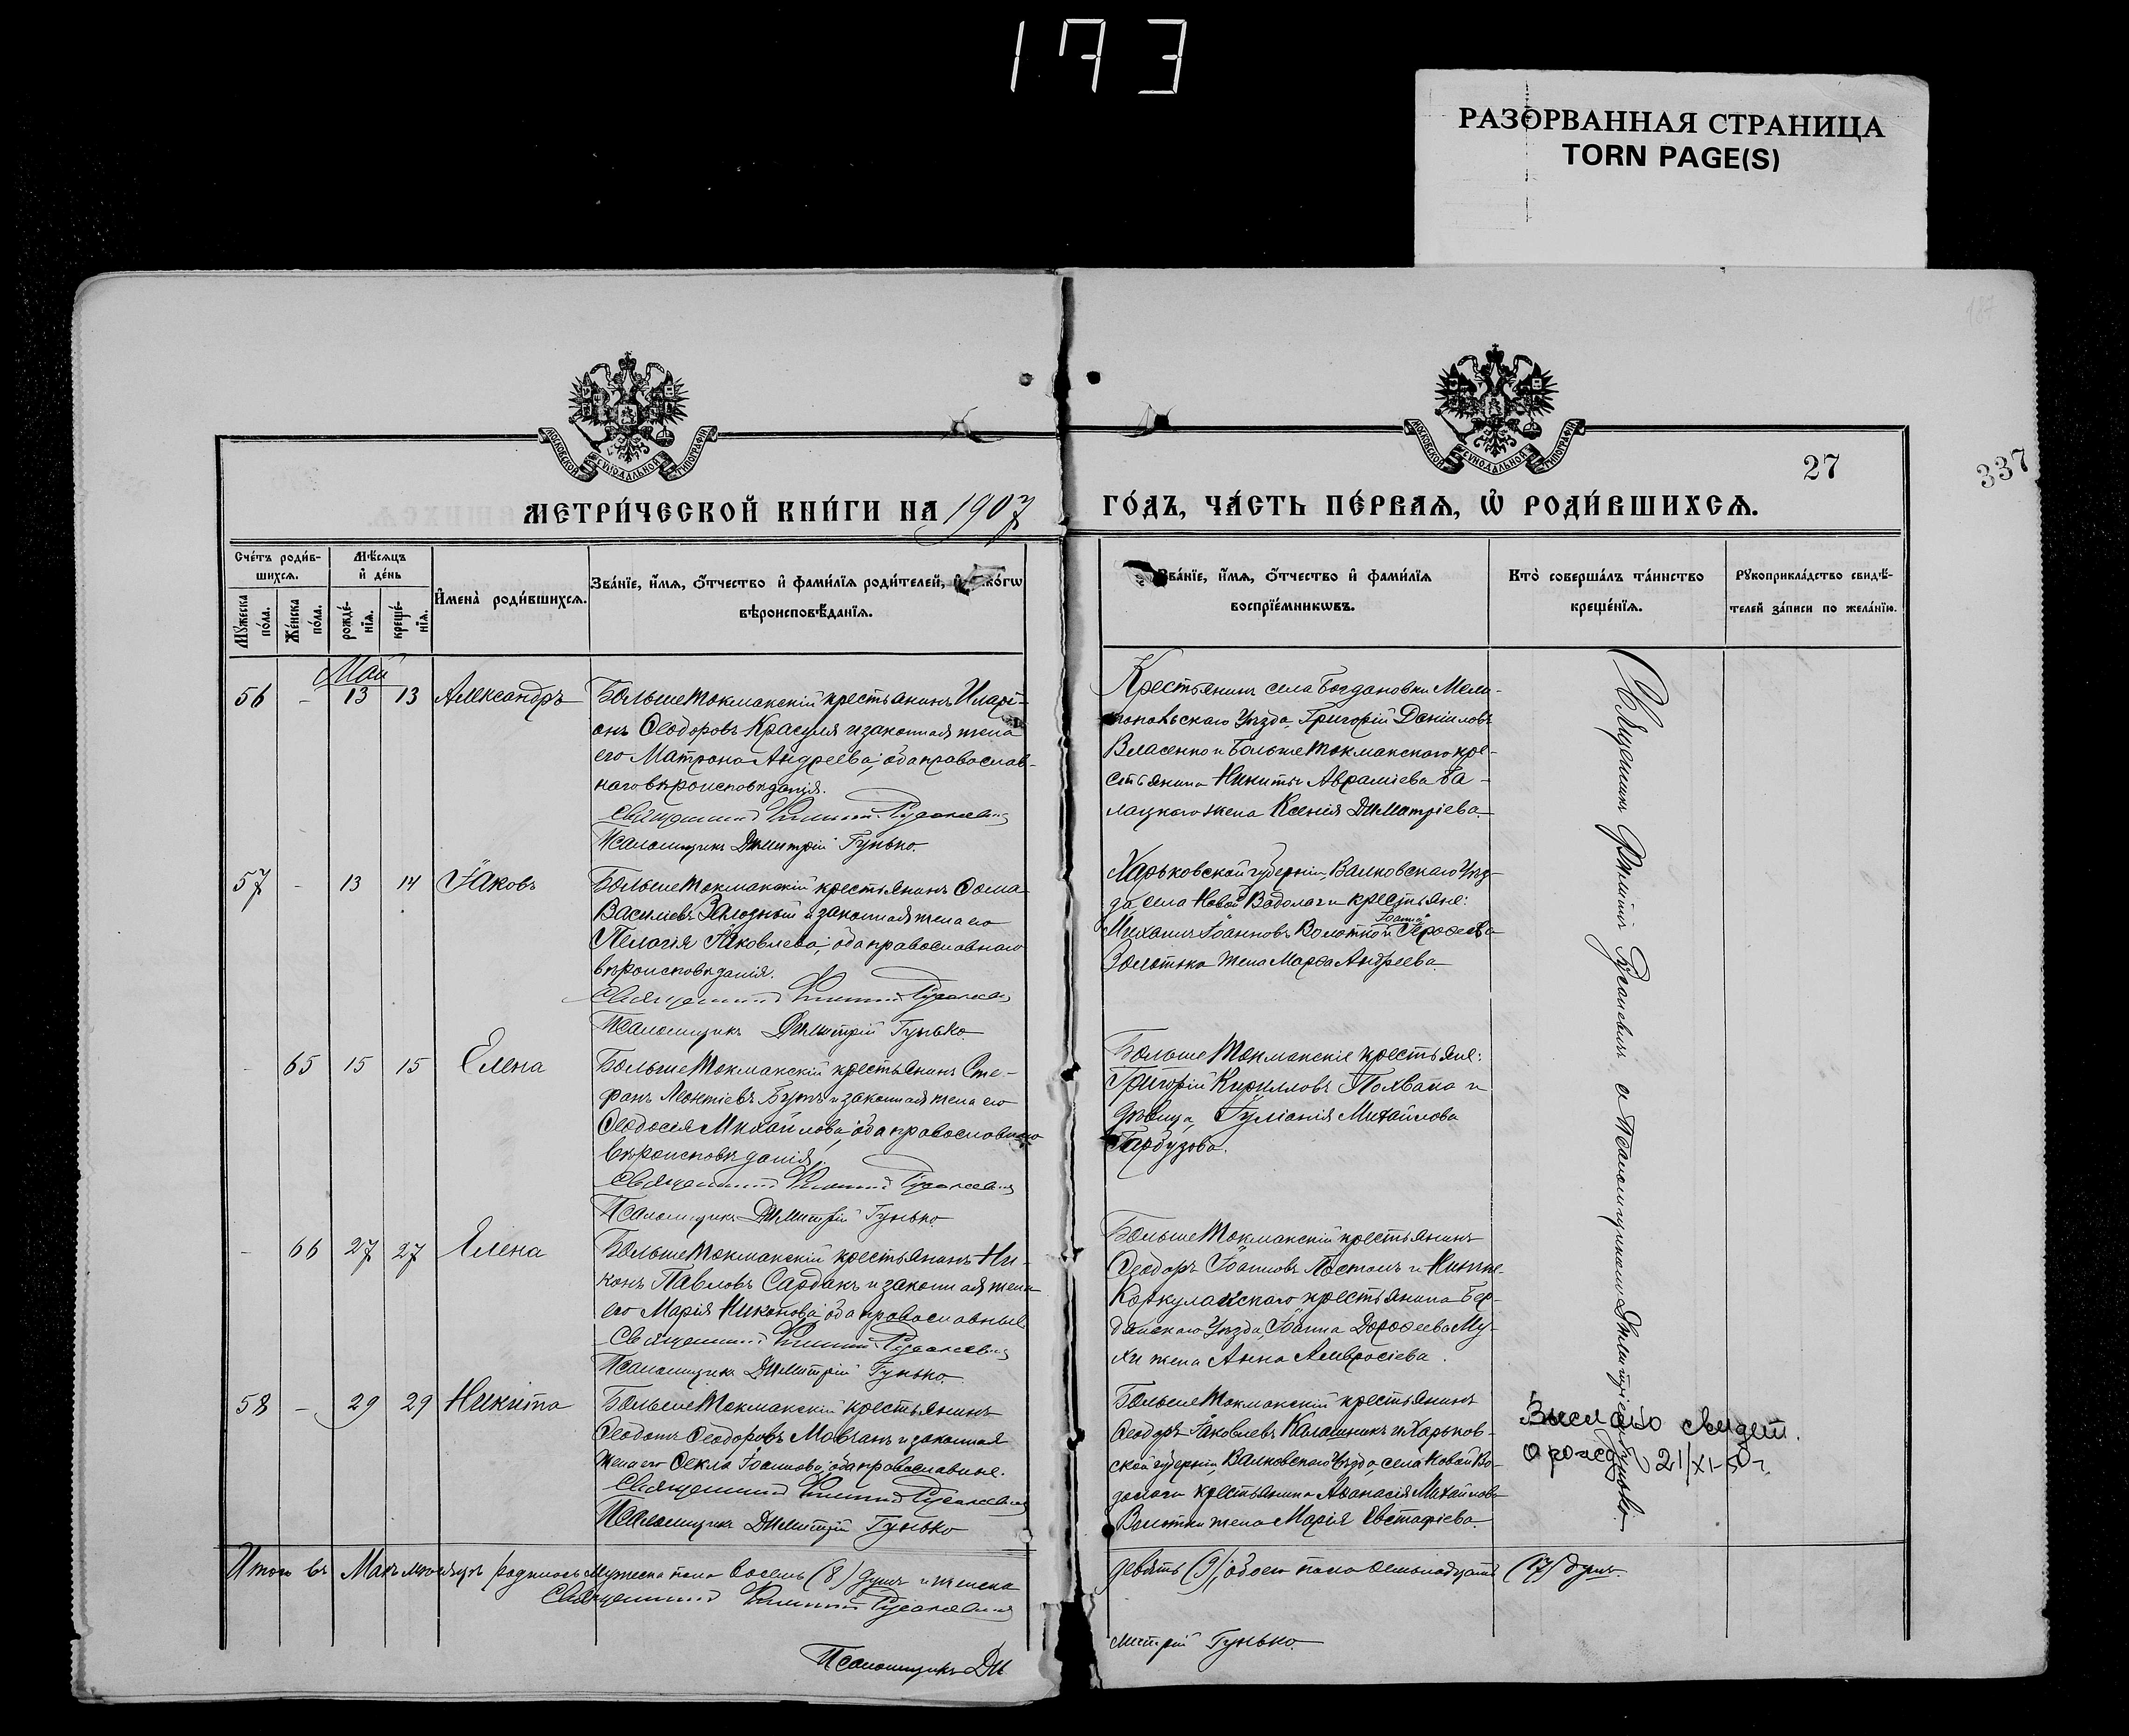 173
РАЗОРВАННАЯ СТРАНИЦА
TORN PAGE(S)
187
МОСКОВСКОЙ СУНОДАЛЬНОЙ ТИПОГРАФІИ
МОСКОВСКОЙ СУНОДАЛЬНОЙ ТИПОГРАФІИ
27
337
МЕТРИ́ЧЕСКОЙ КНИ́ГИ НА 1907
ГО́ДЪ, ЧА́СТЬ ПЕ́РВАѦ, Ѡ҆ РОДИ́ВШИХСѦ.
Сче́тъ роди́в-
шихсѧ.
Мꙋ́жеска по́ла.
Же́нска по́ла.
Мѣ́сѧцъ
и҆ де́нь
рожде́-
нїѧ.
креще́-
нїѧ.
И҆мена̀ роди́вшихсѧ.
Зва́нїе, и҆́мѧ, ѻ҆́тчество и҆ фами́лїѧ роди́телей, и҆ ко́гѡ
вѣроисповѣ́данїѧ.
Зва́нїе, и҆́мѧ, ѻ҆́тчество и҆ фами́лїѧ
воспрїе́мникѡвъ.
Кто̀ соверша́лъ та́инство
креще́нїѧ.
Рꙋкоприкла́дство свидѣ́-
телей за́писи по жела́нїю.
Май
56 - 13 13 Александръ
БольшеТокмакскій крестьянинъ Иларі-
онъ Ѳеодоровъ Красуля и законная жена
его Матрона Андреева; оба православ-
наго вѣроисповѣданія.
Священникъ Филиппъ
Псаломщикъ Димитрій Гунько.
Крестьянинъ села Богдановки Мели-
топольскаго уѣзда, Григорій Даніиловъ
Власенко и БольшеТокмакскаго кре-
стьянина Никиты Авраміева Га-
лацкаго жена Ксенія Димитріева.
57 - 13 14 Іаковъ
БольшеТокмакскій крестьянинъ Ѳома
Василіевъ и законная жена его
Пелагія Іаковлева; оба православнаго
вѣроисповѣданія.
Священникъ Филиппъ
Псаломщикъ Димитрій Гунько.
Харьковской губерніи, Валковскаго уѣз-
да села Новой Водолаги крестьяне:
Михаилъ Іоанновъ и Іоанна
жена Марѳа Андреева.
- 65 15 15 Елена
БольшеТокмакскій крестьянинъ Сте-
фанъ Леонтіевъ и законная жена его
Ѳеодосія Михайлова; оба православнаго
вѣроисповѣданія.
Священникъ Филиппъ
Псаломщикъ Димитрій Гунько.
БольшеТокмакскіе крестьяне:
Григорій Кирилловъ Похвала и
дѣвица, Іуліанія Михайлова
Гарбузова.
- 66 27 27 Елена
БольшеТокмакскій крестьянинъ Ни-
конъ Павловъ Сардакъ и законная жена
его Марія Никонова; оба православные.
Священникъ Филиппъ
Псаломщикъ Димитрій Гунько.
БольшеТокмакскій крестьянинъ
Ѳеодоръ Іоанновъ и Нижне-
Коркулакскаго крестьянина Бер-
дянскаго уѣзда, Іоанна Дороѳеева Му-
хи жена Анна Амвросіева.
58 - 29 29 Никита
БольшеТокмакскій крестьянинъ
Ѳеодотъ Ѳеодоровъ Мовчанъ и законная
жена его Ѳекла Іоаннова; оба православные.
Священникъ Филиппъ
Псаломщикъ Димитрій Гунько
БольшеТокмакскій крестьянинъ
Ѳеодоръ Іаковлевъ Калашникъ и Харьков-
ской губерніи, Валковскаго уѣзда, села Новой Во-
долаги крестьянина Аѳанасія Михайлова
жена Марія Евстафіева.
Священникъ Филиппъ съ Псаломщикомъ Димитріемъ Гунько.
Выслано свидет.
о рожд. 21/XI-50 г.
Итого въ Маѣ мѣсяцѣ родилось мужеска пола восемь (8) душъ и женска
девять (9), обоего пола семьнадцать (17) душъ.
Священникъ Филиппъ
Псаломщикъ Ди
митрій Гунько.